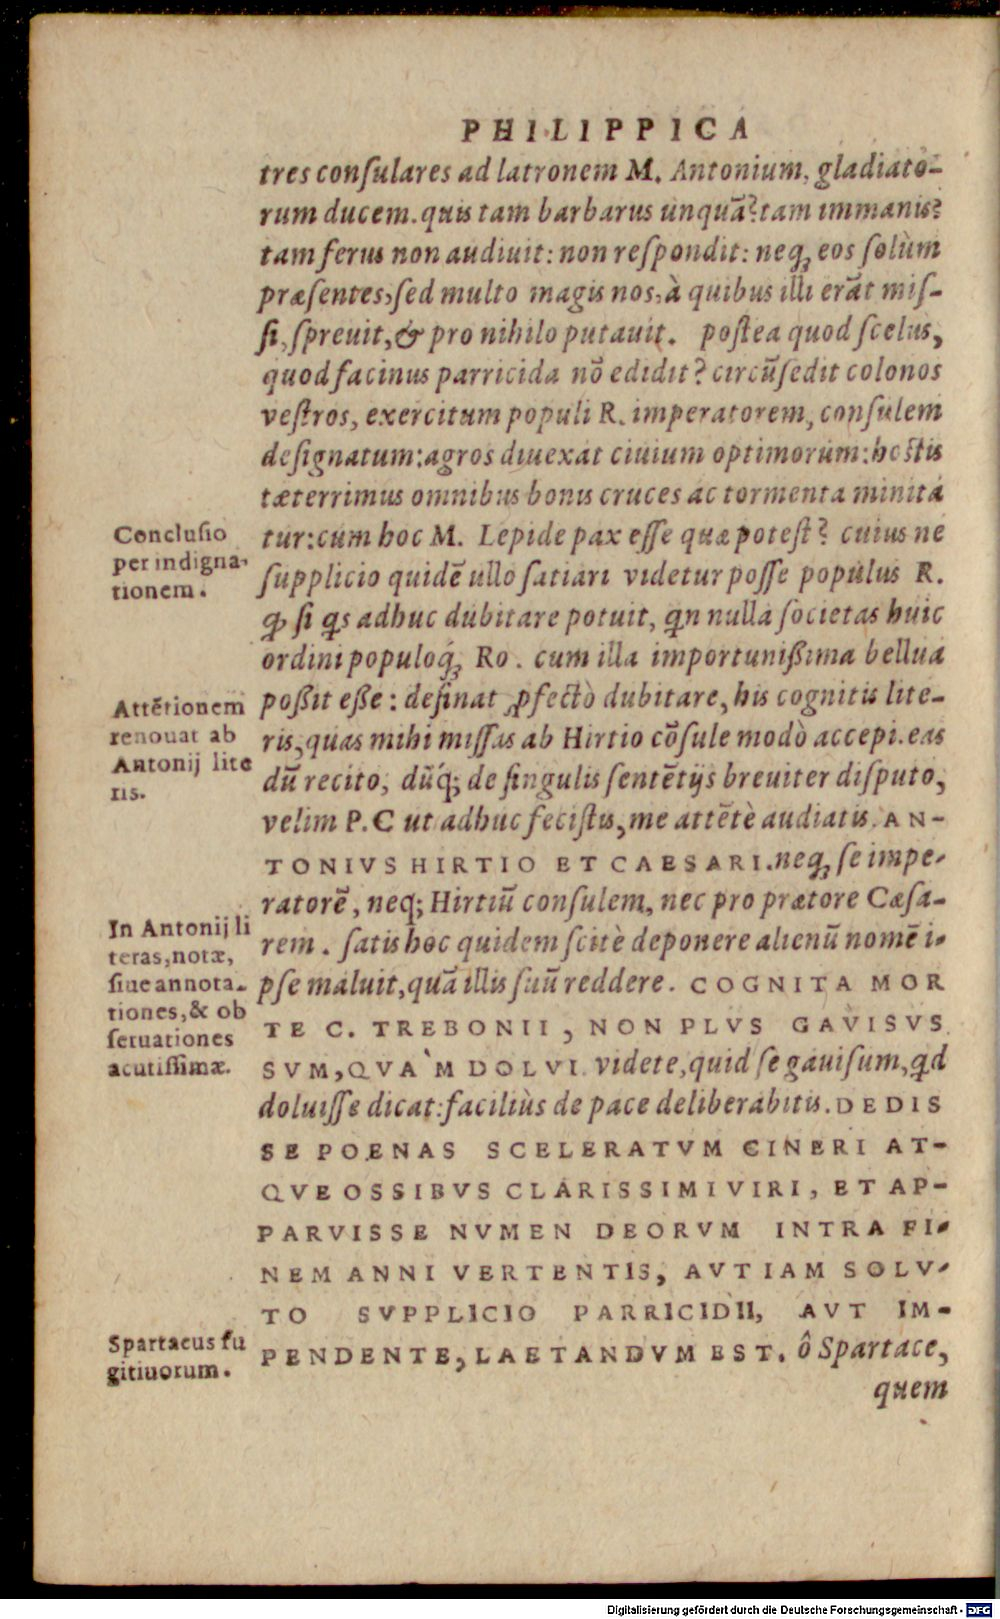 PHILIPPICA
tres conſulares ad latronem M. Antonium, gladiato-
rum ducem. quis tam barbarus unquã? tam immanis?
tam ferus non audiuit: non reſpondit: neqꝫ eos ſolùm
præſentes, ſed multo magis nos, à quibus illi erãt miſ-
ſi, ſpreuit, & pro nihilo putauit. poſtea quod ſcelus,
quod facinus parricida nõ edidit? circũſedit colonos
veſtros, exercitum populi R. imperatorem, conſulem
deſignatum: agros diuexat ciuium optimorum: hoſtis
tæterrimus omnibus bonis cruces ac tormenta minita
tur: cum hoc M. Lepide pax eſſe quæ poteſt? cuius ne
ſupplicio quidẽ ullo ſatiari videtur poſſe populus R.
ꝙ ſi qs adhuc dubitare potuit, qn nulla ſocietas huic
ordini populoqꝫ Ro. cum illa importunißima bellua
poßit eße: deſinat ꝓfectò dubitare, his cognitis lite-
ris, quas mihi miſſas ab Hirtio cõſule modò accepi. eas
dũ recito, dũq́; de ſingulis ſentẽtijs breuiter diſputo,
velim P.C ut adhuc feciſtis, me attẽtè audiatis. AN-
TONIVS HIRTIO ET CAESARI. neqꝫ ſe impe-
ratorẽ, neq; Hirtiũ conſulem, nec pro prætore Cæſa-
rem. ſatis hoc quidem ſcitè deponere alienũ nomẽ i-
pſe maluit, quã illis ſuũ reddere. COGNITA MOR
TE C. TREBONII, NON PLVS GAVISVS
SVM, QVA`M DOLVI. videte, quid ſe gauiſum, qd
doluiſſe dicat: faciliùs de pace deliberabitis. DEDIS
SE POENAS SCELERATVM CINERI AT-
QVE OSSIBVS CLARISSIMI VIRI, ET AP-
PARVISSE NVMEN DEORVM INTRA FI-
NEM ANNI VERTENTIS, AVT IAM SOLV-
TO SVPPLICIO PARRICIDII, AVT IM-
PENDENTE, LAETANDVM EST. ô Spartace,
quem
Concluſio
per indigna-
tionem.
Attẽtionem
renouat ab
Antonij lite
ris.
In Antonij li
teras, notæ,
ſiue annota-
tiones, & ob
ſeruationes
acutiſſimæ.
Spartacus fu
gitiuorum.
Digitalisierung gefördert durch die Deutsche Forschungsgemeinschaft - DFG